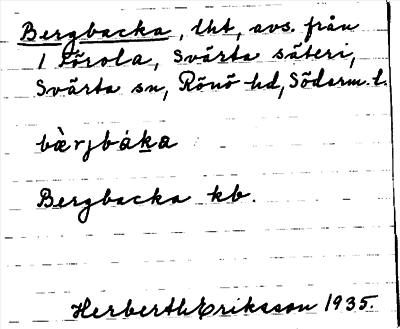 Bergbacka, lht, avs. från
1 Törola, Svärta säteri,
Svärta sn, Rönö hd, Söderm. l.
bærjbáka
Bergbacka kb.
Herberth Eriksson 1935.